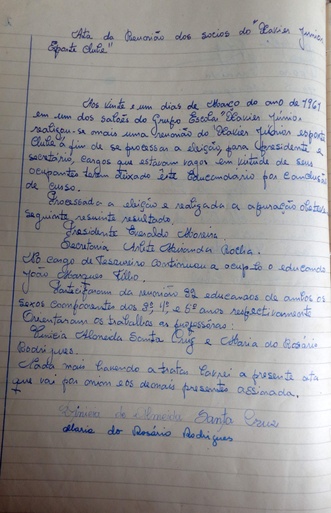 Ata da Reunião dos socios do "Xavier Junior
Esporte Clube"
Aos vinte e um dias de Março do ano de 1961
em um dos salões do Grupo Escolar "Xavier Junior"
realizou-se mais uma reunião do Xavier Júnior esporte
Clube a fim de se processar a eleição, para Presidente e
secretário, cargos que estavam vagos em virtude de seus
ocupantes terem deixado este Educandário por conclusão
de curso.
Processada a eleição e realizada a apuração obteve
seguinte resultado.
Presidente Everaldo Moreira
Secretaria Arlete Miranda Rocha.
No cargo de Tesoureiro continuou a ocupá-lo o educando
João Marques Filho.
Participaram da reunião 92 educandos de ambos os
sexos componentes dos 3º, 4º e 5º anos respectivamente
Orientaram os trabalhos as professoras:
Vinicia Almeida Santa Cruz e Maria do Rosário
Rodrigues.
Nada mais havendo a tratar lavrei a presente ata
que vai por mim e os demais presentes assinada.
Vinicia de Almeida Santa Cruz
Maria do Rosário Rodrigues